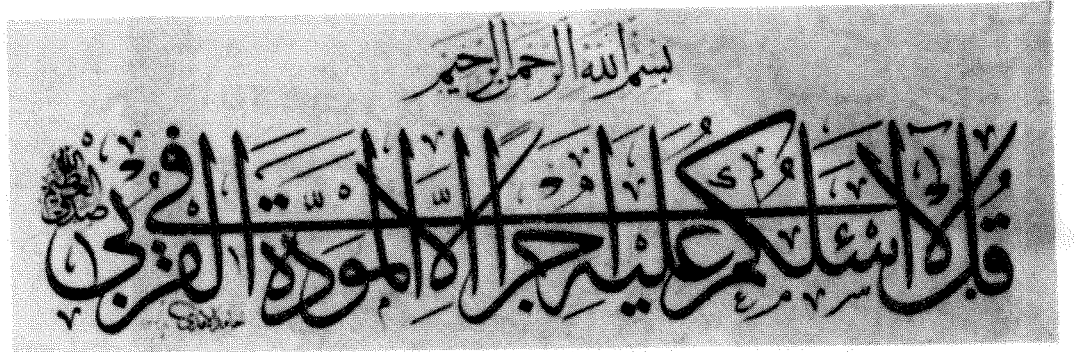 بسم الله الرحمن الرحيم
قل لا أسئلكم عليه أجرا إلا المودة في القربى
صدق الله العظيم